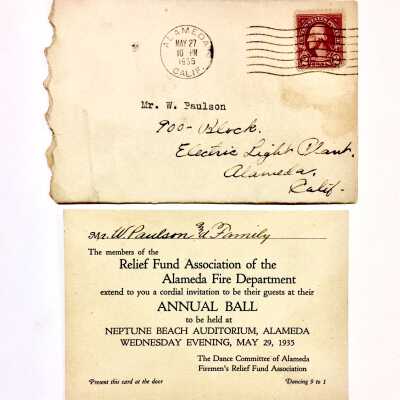 ALAMEDA
MAY 27
10 PM
1935
CALIF.
UNITED STATES POSTAGE
2 CENTS 2
Mr. W. Paulson
900-Block.
Electric Light Plant.
Alameda,
Calif-
Mr. W. Paulson & Family
The members of the
Relief Fund Association of the
Alameda Fire Department
extend to you a cordial invitation to be their guests at their
ANNUAL BALL
to be held at
NEPTUNE BEACH AUDITORIUM, ALAMEDA
WEDNESDAY EVENING, MAY 29, 1935
The Dance Committee of Alameda
Firemen's Relief Fund Association
Present this card at the door
Dancing 9 to 1